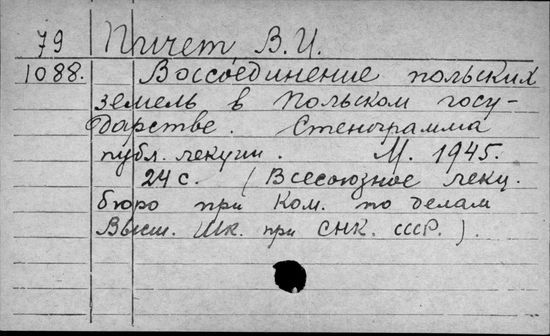 79 Пичет В.И.
1088. Воссоединение польских
земель в Польском госу-
дарстве. Стенограмма
публ. лекции. М. 1945.
24 с. (Всесоюзное лекц.
бюро при Ком. по делам
Высш. Шк. при СНК. СССР.).